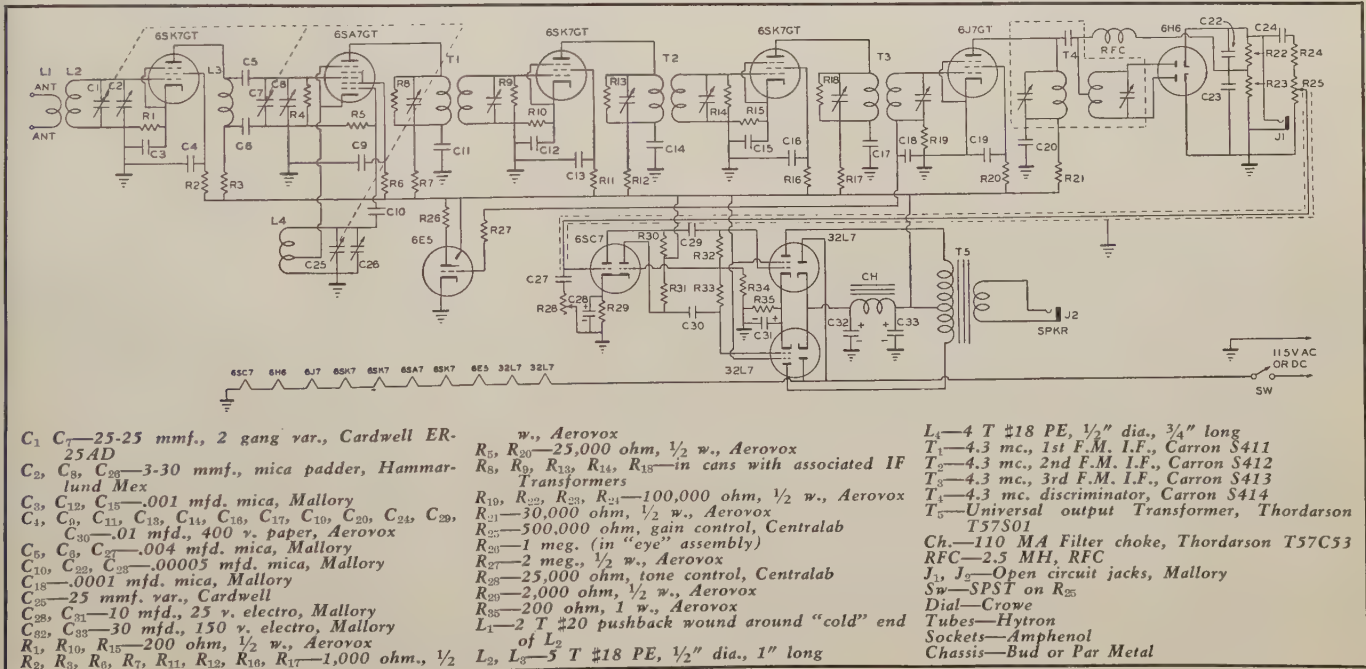 6SK7GT
6SA7GT
6SK7GT
6SK7GT
6J7GT
6H6
L1 L2
ANT
ANT
C1
C2
R1
C3
C4
R2
L3
C5
C6
R3
C7
C8
R4
R5
C9
R6
C10
L4
C25
C26
T1
R8
R7
C11
R9
R10
C12
C13
R11
T2
R13
R12
C14
R14
R15
C15
C16
R16
T3
R18
R17
C17
C18
R19
C19
R20
T4
C20
R21
RFC
C22
C23
R22
R23
C24
R24
R25
J1
R26
6E5
R27
6SC7
C27
R28
C28
R29
R30
R31
C29
C30
R32
R33
R34
R35
C31
32L7
32L7
CH
C32
C33
T5
J2
SPKR
115V AC
OR DC
SW
6SC7 6H6 6J7 6SK7 6SK7 6SA7 6SK7 6E5 32L7 32L7
C1 C7—25-25 mmf., 2 gang var., Cardwell ER-
25AD
C2, C8, C26—3-30 mmf., mica padder, Hammar-
lund Mex
C3, C12, C15—.001 mfd. mica, Mallory
C4, C9, C11, C13, C14, C16, C17, C19, C20, C24, C29,
C30—.01 mfd., 400 v. paper, Aerovox
C5, C6, C27—.004 mfd. mica, Mallory
C10, C22, C23—.00005 mfd. mica, Mallory
C18—.0001 mfd. mica, Mallory
C25—25 mmf. var., Cardwell
C28, C31—10 mfd., 25 v. electro, Mallory
C32, C33—30 mfd., 150 v. electro, Mallory
R1, R10, R15—200 ohm, ½ w., Aerovox
R2, R3, R6, R7, R11, R12, R16, R17—1,000 ohm., ½
w., Aerovox
R5, R20—25,000 ohm, ½ w., Aerovox
R8, R9, R13, R14, R18—in cans with associated IF
Transformers
R19, R22, R23, R24—100,000 ohm, ½ w., Aerovox
R21—30,000 ohm, ½ w., Aerovox
R25—500,000 ohm, gain control, Centralab
R26—1 meg. (in "eye" assembly)
R27—2 meg., ½ w., Aerovox
R28—25,000 ohm, tone control, Centralab
R29—2,000 ohm, ½ w., Aerovox
R35—200 ohm, 1 w., Aerovox
L1—2 T #20 pushback wound around "cold" end
of L2
L2, L3—5 T #18 PE, ½" dia., 1" long
L4—4 T #18 PE, ½" dia., ¾" long
T1—4.3 mc., 1st F.M. I.F., Carron S411
T2—4.3 mc., 2nd F.M. I.F., Carron S412
T3—4.3 mc., 3rd F.M. I.F., Carron S413
T4—4.3 mc. discriminator, Carron S414
T5—Universal output Transformer, Thordarson
T57S01
Ch.—110 MA Filter choke, Thordarson T57C53
RFC—2.5 MH, RFC
J1, J2—Open circuit jacks, Mallory
Sw—SPST on R25
Dial—Crowe
Tubes—Hytron
Sockets—Amphenol
Chassis—Bud or Par Metal